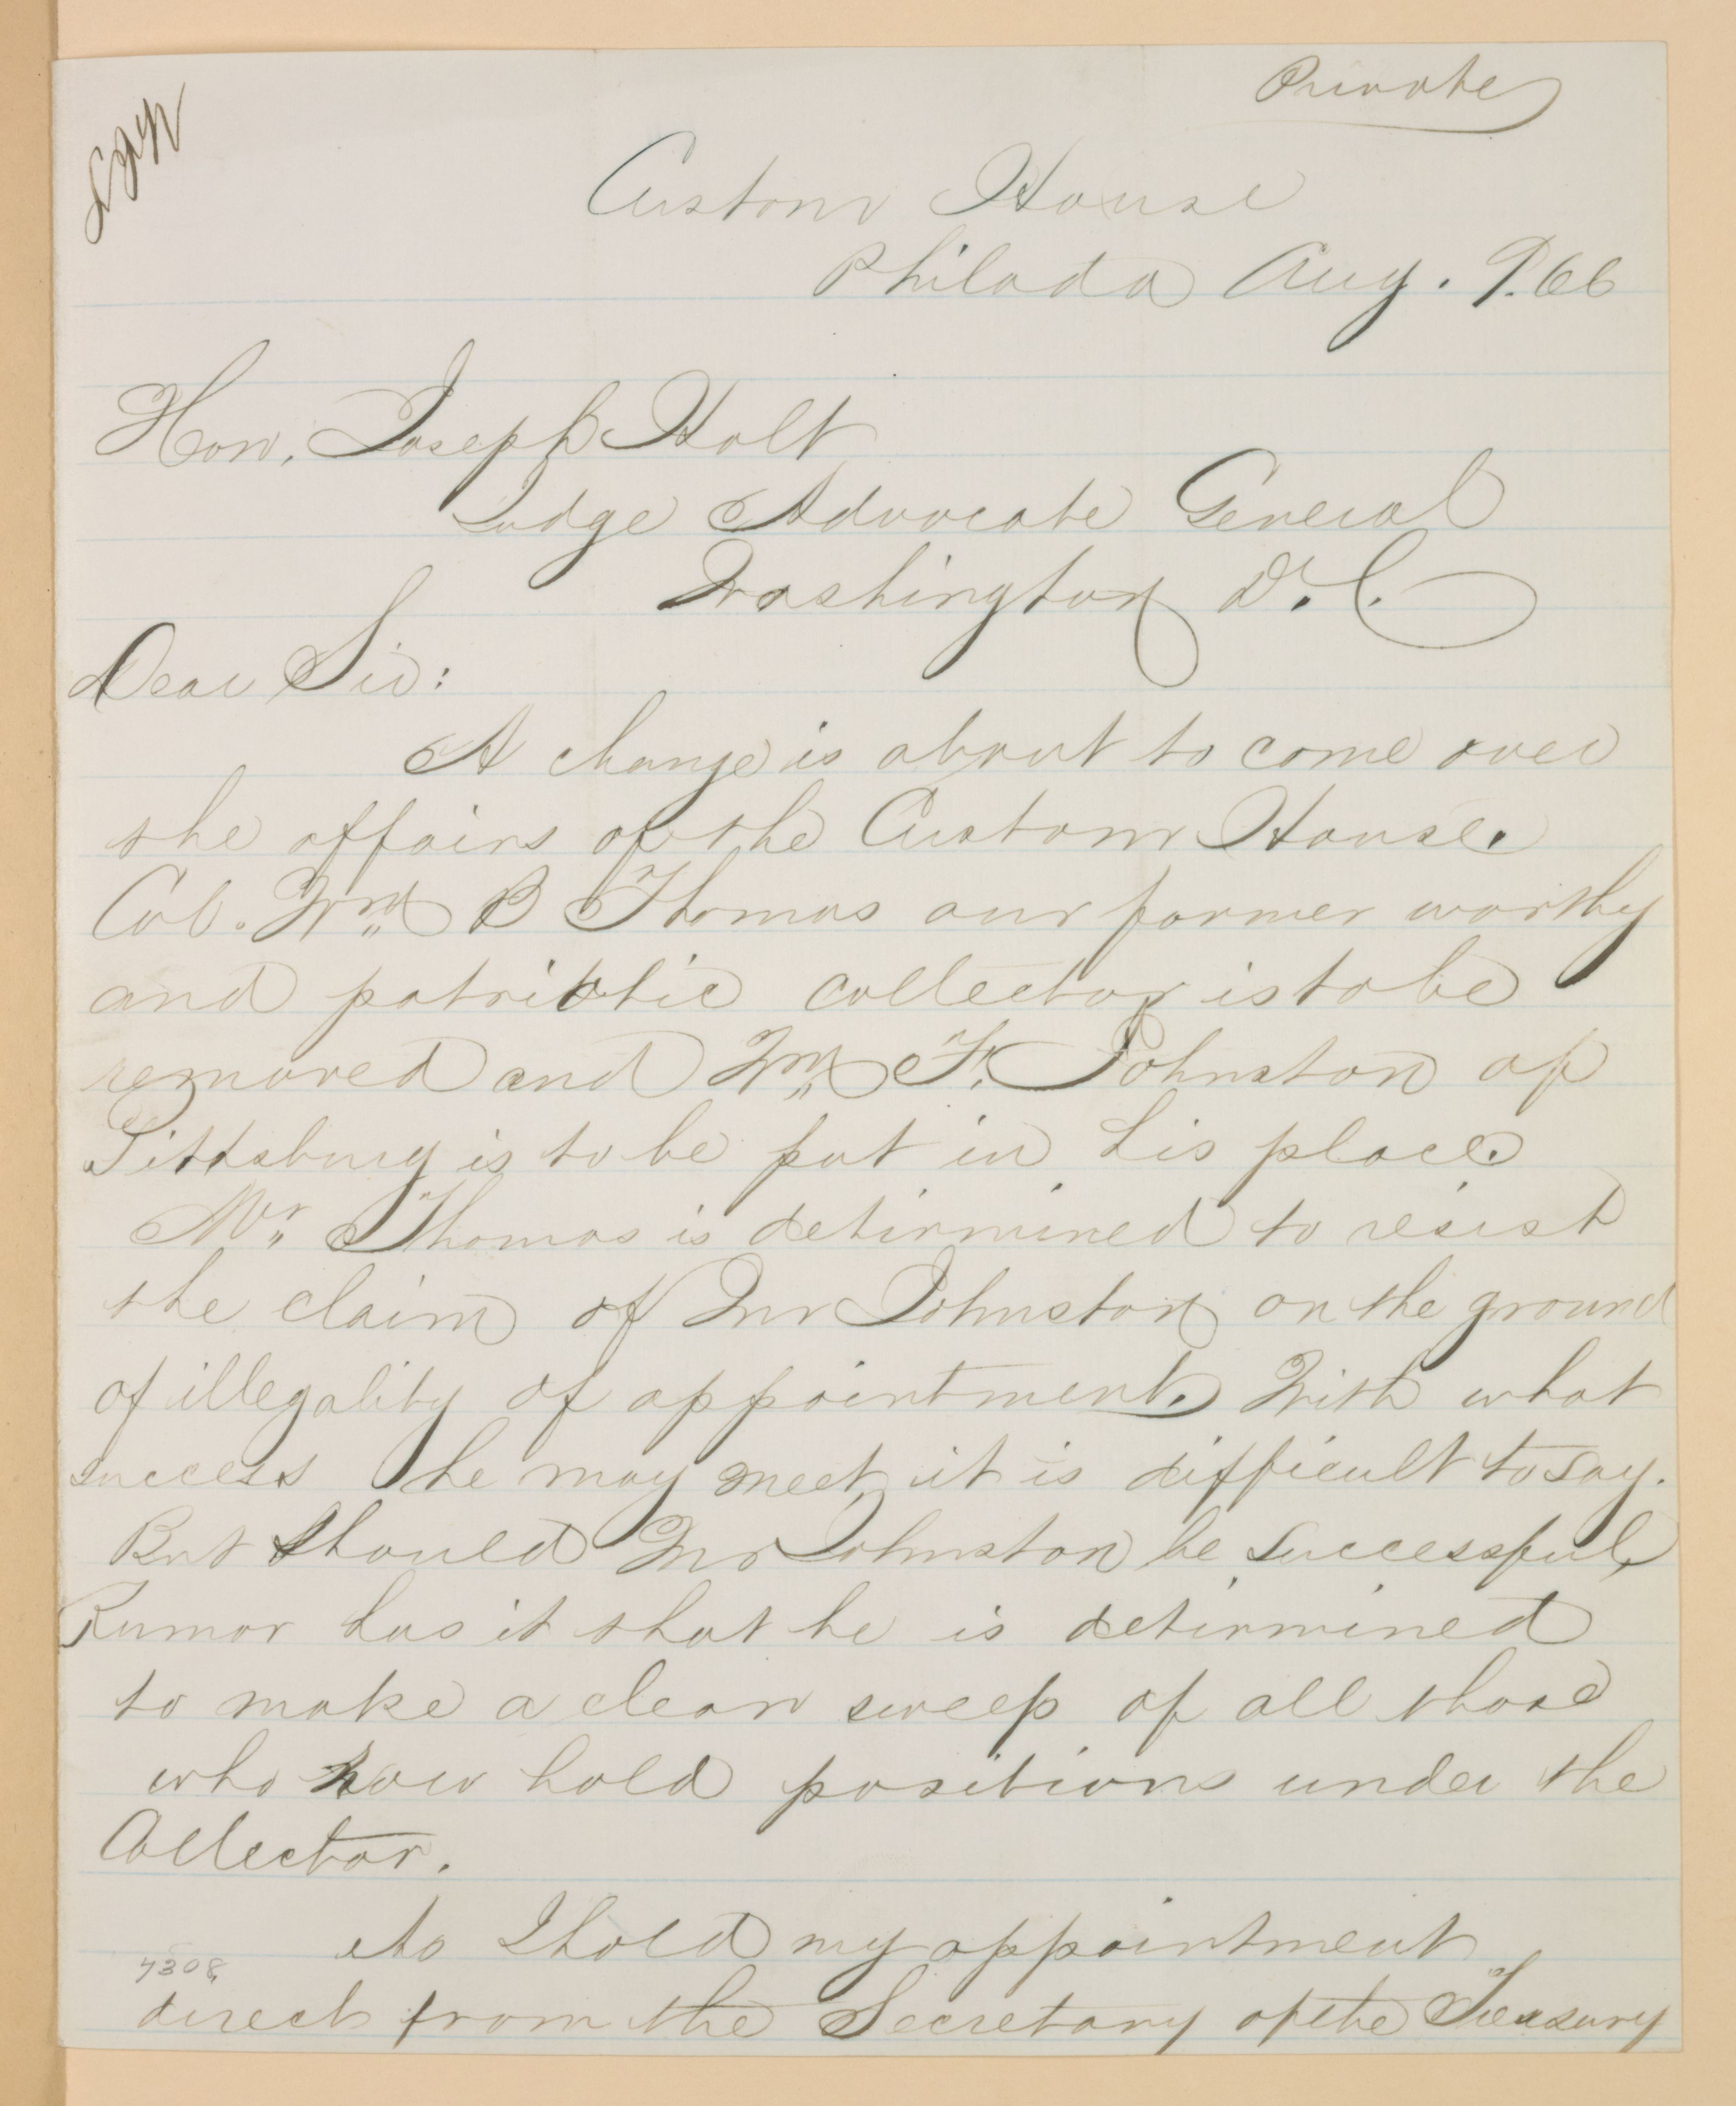 Private
Custom House
Philada Aug. 9. 66
Hon. Joseph Holt
Judge Advocate General
Washington D. C.
Dear Sir:
A change is about to come over
the affairs of the Custom House.
Col. Wm B Thomas our former worthy
and patriotic collector is to be
removed and Wm F. Johnston of
Pittsburg is to be put in his place.
Mr. Thomas is detirmined to resist
the claim of Mr Johnston on the ground
of illegality of appointment. With what
success he may meet, it is difficult to say.
But should Mr Johnston be successful,
Rumor has it that he is detirmined
to make a clean sweep of all those
who now hold positions under the
Collector.
As I hold my appointment
7308
direct from the Secretary of the Treasury